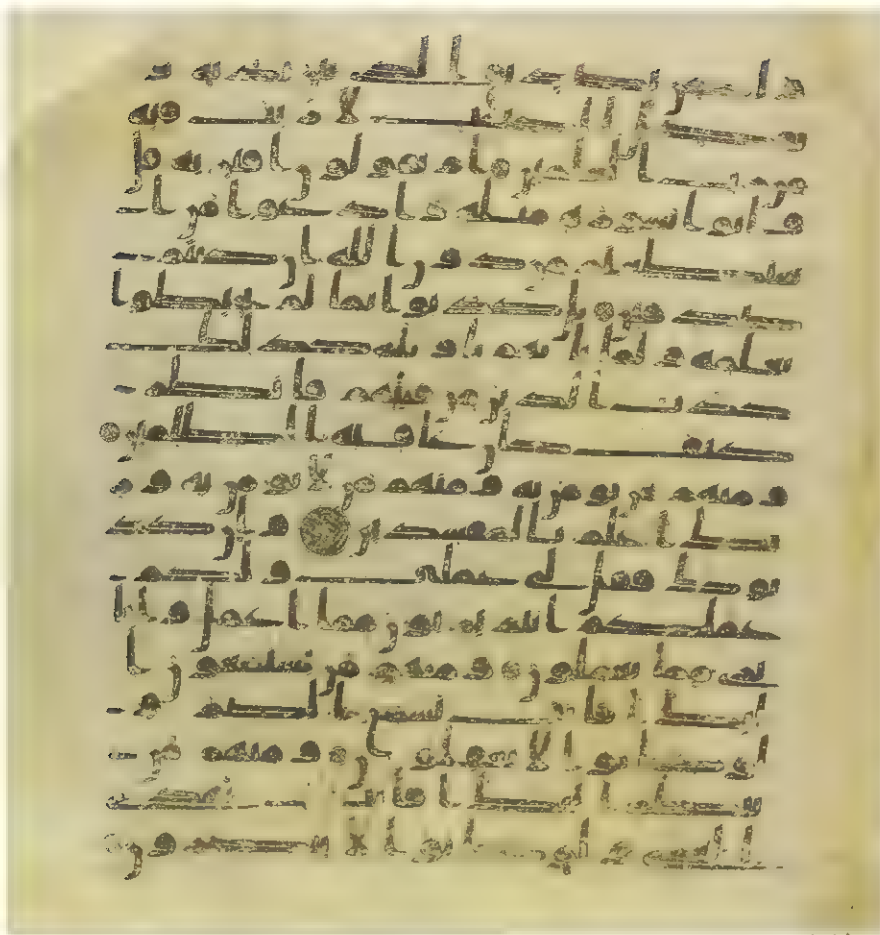 ولكن تصديق الذي بين يديه و
تفصيل الكتب لا ريب فيه
من رب العلمين ام يقولون افتريه
قل فاتوا بسورة مثله وادعوا من ا
ستطعتم من دون الله ان كنتم
صدقين بل كذبوا بما لم يحيطوا
بعلمه ولما ياتهم تاويله كذلك
كذب الذين من قبلهم فانظر
كيف كان عقبة الظلمين
ومنهم من يومن به ومنهم من لا يومن به ور
بك اعلم بالمفسدين وان كذ
بوك فقل لي عملي ولكم
عملكم انتم بريون مما اعمل وانا
بري مما تعملون ومنهم من يستمعون ا
ليك افانت تسمع الصم ولو
كانوا لا يعقلون ومنهم من
ينظر اليك افانت تهدي
العمي ولو كانوا لا يبصرون